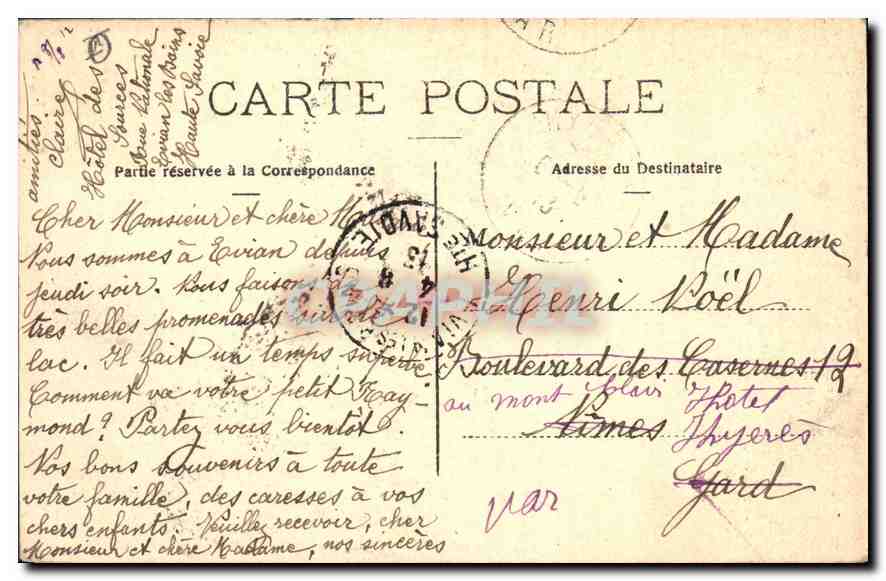 CARTE POSTALE
Partie réservée à la Correspondance
Adresse du Destinataire
Cher Monsieur et chère
Nous sommes à Evian depuis
jeudi soir. Nous faisons de
très belles promenades sur le
lac. Il fait un temps superbe.
Comment va votre petit Ray-
mond? Partez vous bientôt.
Nos bons souvenirs à toute
votre famille, des caresses à vos
chers enfants. Veuillez recevoir, cher
Monsieur et chère Madame, nos sincères
amitiés.
Claire
Hôtel des
Sources
Rue Nationale
Evian les Bains
Haute Savoie
Monsieur et Madame
Henri Noël
Boulevard des Casernes 12
Nîmes
Gard
au mont
Hotel
par
HTE SAVOIE
13
4 8
12